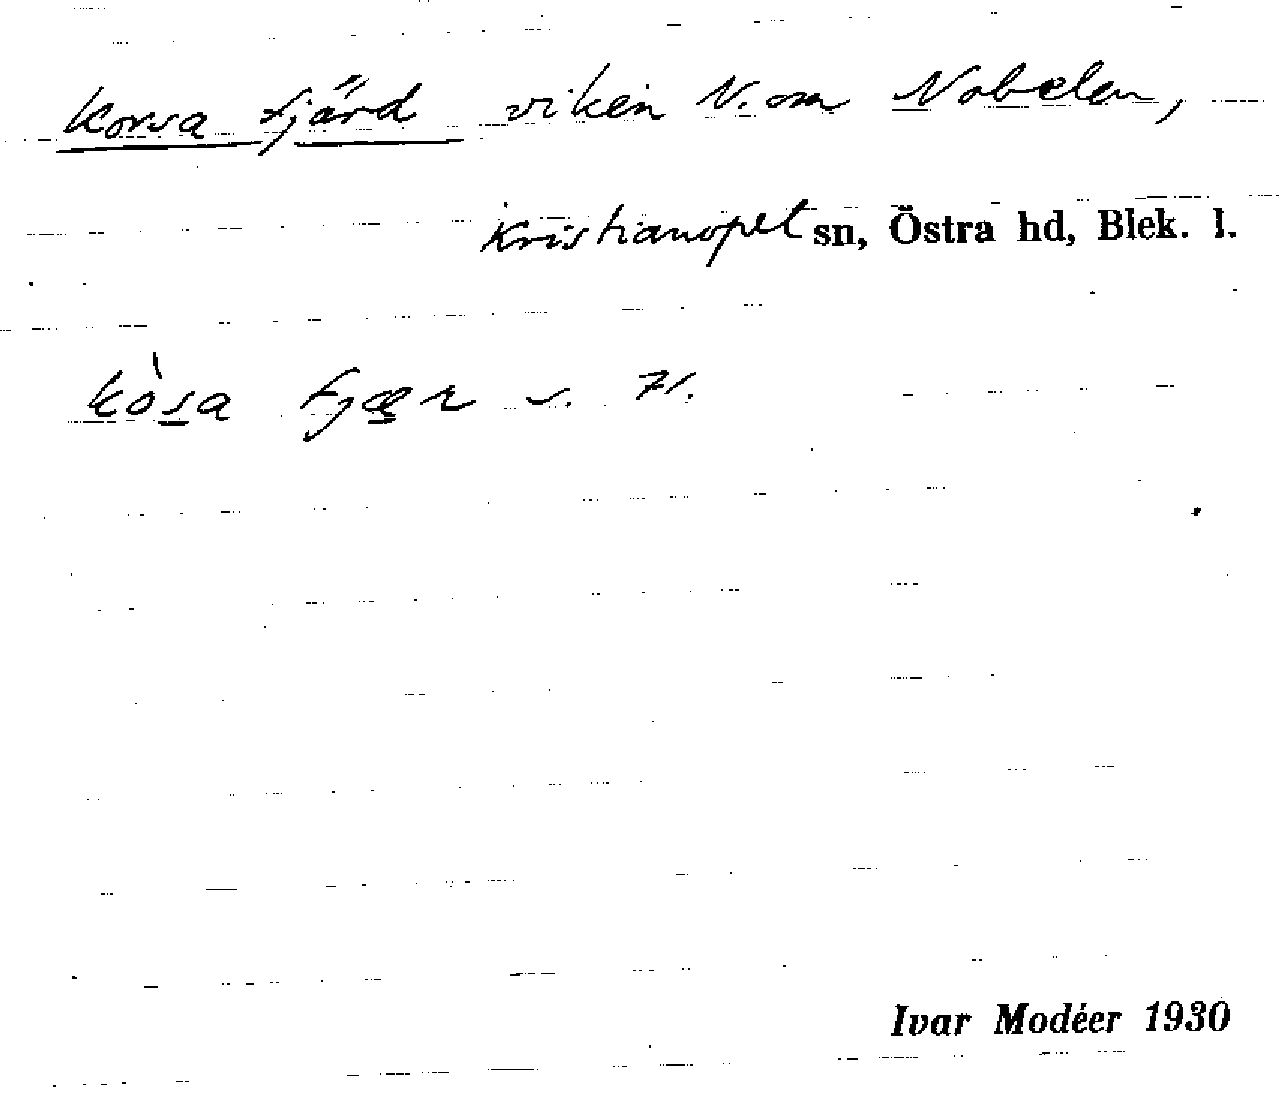 Korsa fjärd viken N. om Nabelen,
Kristianopel sn, Östra hd, Blek. l.
kòsa fjær
Ivar Modéer 1930